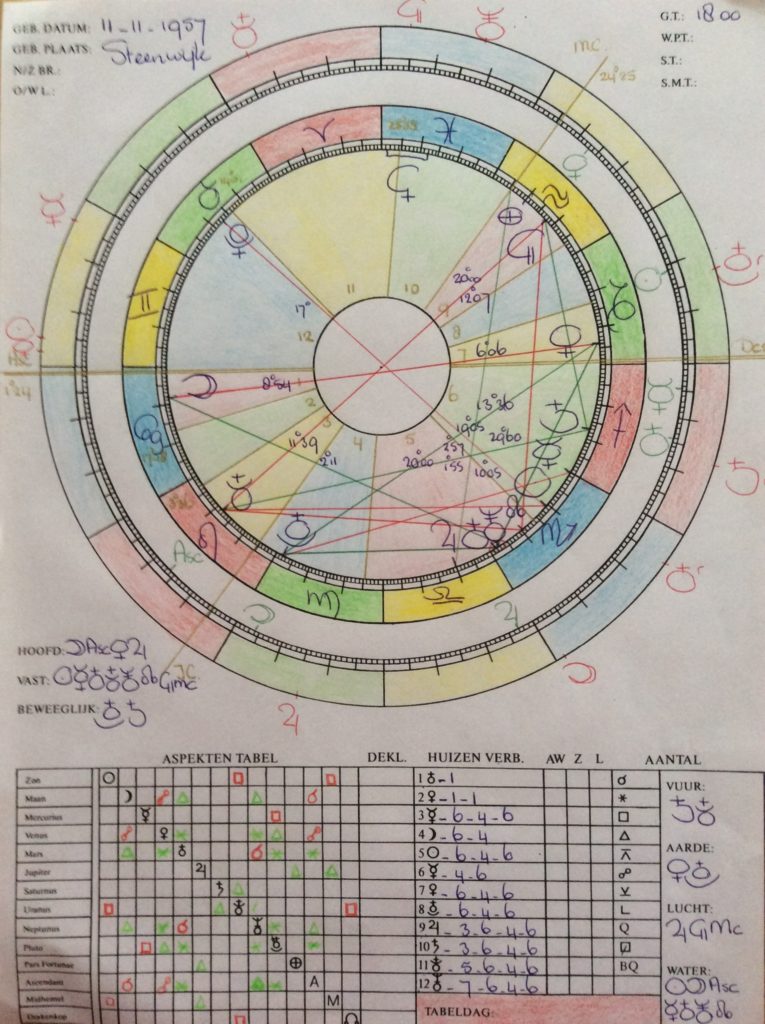 GEB. DATUM: 11-11-1957
GEB. PLAATS: Steenwijk
N/Z BR.:
O/W L.:
G.T.: 18.00
W.P.T.:
S.T.:
S.M.T.:
mc.
24°25
25°35
11
10
9
8
7
6
5
4
3
2
1
12
17°
20°00
12°07
6°06
13°36
19°05
29°60
2°57
1°55
20°00
10°05
8°54
11°39
2°11
1°24
Asc
I.C.
HOOFD: ☽ Asc ♀ ♃
VAST:
BEWEEGLIJK:
ASPEKTEN TABEL
DEKL.
HUIZEN VERB.
AW Z L
AANTAL
Zon
Maan
Mercurius
Venus
Mars
Jupiter
Saturnus
Uranus
Neptunus
Pluto
Pars Fortunae
Ascendant A
Midhemel M
Drakenkop
2 ♀-1-1
3 ☿-6-4-6
4 ☽-6-4
5 ☉-6-4-6
6 ☿-4-6
7 ♀-6-4-6
9 ♃-3-6-4-6
10 ♄-3-6-4-6
Q
BQ
VUUR:
AARDE:
LUCHT:
WATER:
TABELDAG: